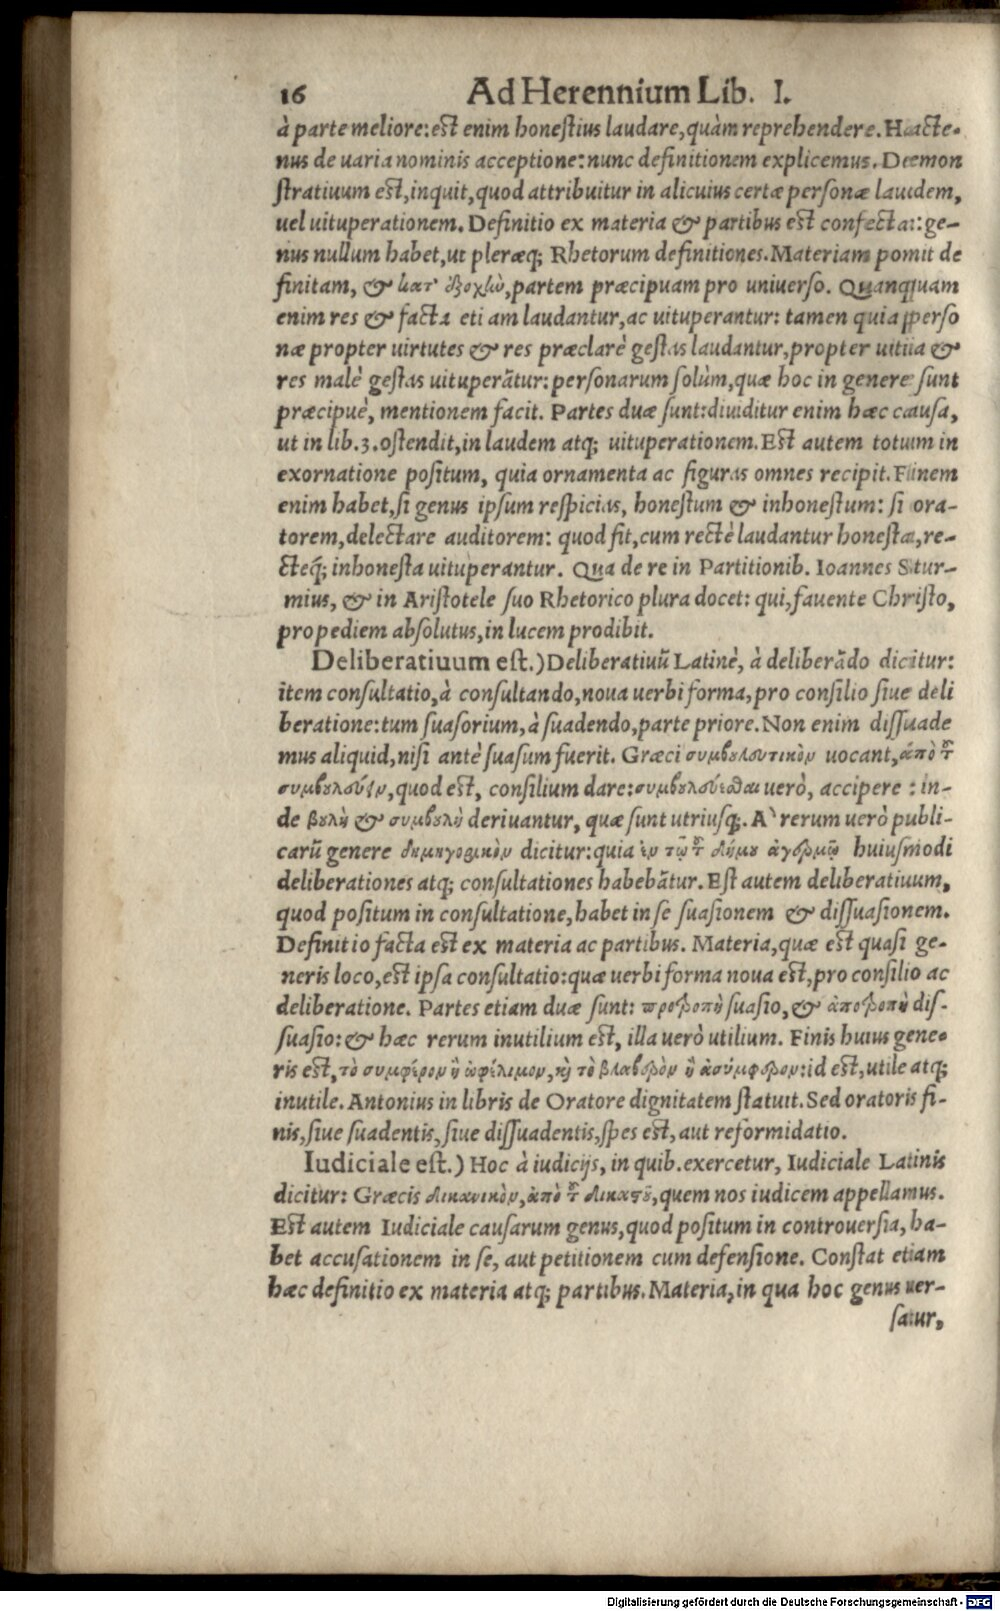 16 Ad Herennium Lib. I.
à parte meliore: est enim honestius laudare, quàm reprehendere. Hacte-
nus de uaria nominis acceptione: nunc definitionem explicemus. Demon
stratiuum est, inquit, quod attribuitur in alicuius certæ personæ laudem,
uel uituperationem. Definitio ex materia & partibus est confecta: ge-
nus nullum habet, ut pleræq; Rhetorum definitiones. Materiam ponit de
finitam, & κατ' ἐξοχὴν, partem præcipuam pro uniuerso. Quanquam
enim res & facta etiam laudantur, ac uituperantur: tamen quia perso
næ propter uirtutes & res præclarè gestas laudantur, propter uitia &
res malè gestas uituperãtur: personarum solùm, quæ hoc in genere sunt
præcipuè, mentionem facit. Partes duæ sunt: diuiditur enim hæc causa,
ut in lib. 3. ostendit, in laudem atq; uituperationem. Est autem totum in
exornatione positum, quia ornamenta ac figuras omnes recipit. Finem
enim habet, si genus ipsum respicias, honestum & inhonestum: si ora-
torem, delectare auditorem: quod fit, cum rectè laudantur honesta, re-
cteq́; inhonesta uituperantur. Qua de re in Partitionib. Ioannes Stur-
mius, & in Aristotele suo Rhetorico plura docet: qui, fauente Christo,
propediem absolutus, in lucem prodibit.
Deliberatiuum est.) Deliberatiuũ Latinè, à deliberãdo dicitur:
item consultatio, à consultando, noua uerbi forma, pro consilio siue deli
beratione: tum suasorium, à suadendo, parte priore. Non enim dissuade
mus aliquid, nisi antè suasum fuerit. Græci συμβουλευτικὸν uocant, ἀπὸ τοῦ
συμβουλεύειν, quod est, consilium dare: συμβουλεύεσθαι uerò, accipere: in-
de βουλὴ & συμβουλὴ deriuantur, quæ sunt utriusq;. A` rerum uerò publi-
carũ genere δημηγορικὸν dicitur: quia ἐν τῷ τοῦ δήμου ἀγερμῷ huiusmodi
deliberationes atq; consultationes habebãtur. Est autem deliberatiuum,
quod positum in consultatione, habet in se suasionem & dissuasionem.
Definitio facta est ex materia ac partibus. Materia, quæ est quasi ge-
neris loco, est ipsa consultatio: quæ uerbi forma noua est, pro consilio ac
deliberatione. Partes etiam duæ sunt: προτροπὴ suasio, & ἀποτροπὴ dis-
suasio: & hæc rerum inutilium est, illa uerò utilium. Finis huius gene-
ris est, τὸ συμφέρον ἢ ὠφέλιμον, καὶ τὸ βλαβερὸν ἢ ἀσύμφερον: id est, utile atq;
inutile. Antonius in libris de Oratore dignitatem statuit. Sed oratoris fi-
nis, siue suadentis, siue dissuadentis, spes est, aut reformidatio.
Iudiciale est.) Hoc à iudicijs, in quib. exercetur, Iudiciale Latinis
dicitur: Græcis δικανικὸν, ἀπὸ τοῦ δικαστοῦ, quem nos iudicem appellamus.
Est autem Iudiciale causarum genus, quod positum in controuersia, ha-
bet accusationem in se, aut petitionem cum defensione. Constat etiam
hæc definitio ex materia atq; partibus. Materia, in qua hoc genus uer-
satur,
Digitalisierung gefördert durch die Deutsche Forschungsgemeinschaft - DFG